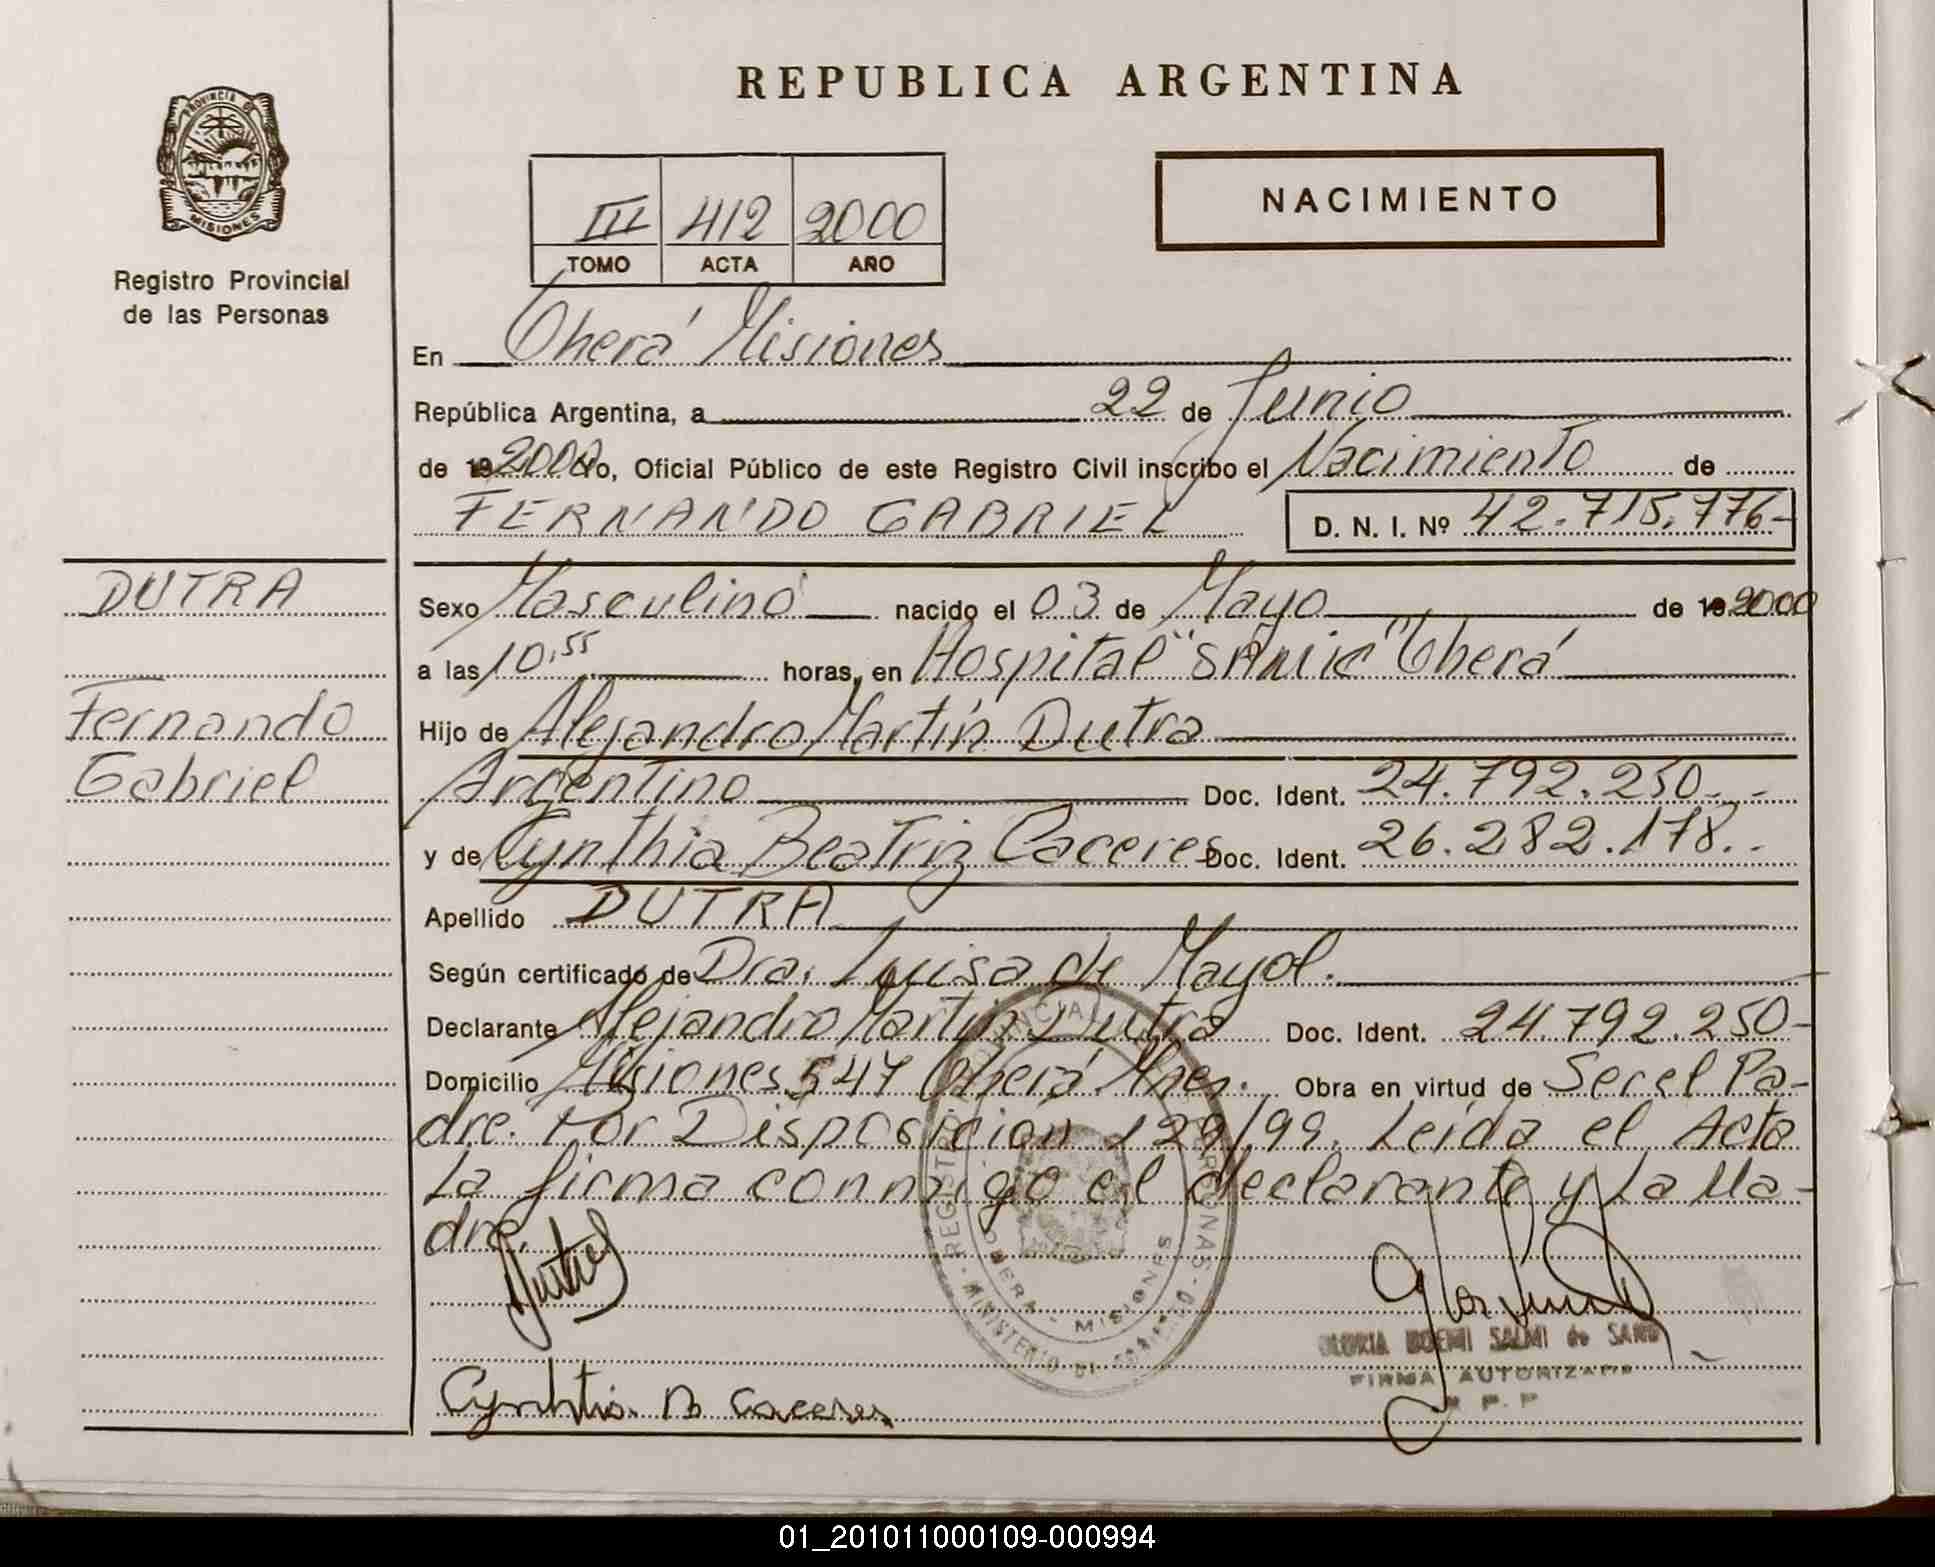 REPUBLICA ARGENTINA
PROVINCIA DE
MISIONES
Registro Provincial
de las Personas
NACIMIENTO
III 412 2000
TOMO ACTA AÑO
En Oberá Misiones
República Argentina, a 22 de Junio
de 19 2000 Yo, Oficial Público de este Registro Civil inscribo el Nacimiento de
FERNANDO GABRIEL D. N. I. Nº 42.715.776-
DUTRA
Fernando
Gabriel
Sexo Masculino nacido el 03 de Mayo de 19 2000
a las 10,55 horas, en Hospital "SAMIC" Oberá
Hijo de Alejandro Martín Dutra
Argentino Doc. Ident. 24.792.250.--
y de Cynthia Beatriz Caceres Doc. Ident. 26.282.178.-
Apellido DUTRA
Según certificado de Dra. Luisa de Mayol.
Declarante Alejandro Martín Dutra Doc. Ident. 24.792.250-
Domicilio Misiones 547 Oberá Mnes. Obra en virtud de Ser el Pa-
dre. Por Disposición 129/99. Leída el Acta
La firma conmigo el declarante y La Ma-
dre.
Dutra
REGISTRO PROVINCIAL DE LAS PERSONAS
OBERA - MISIONES
MINISTERIO DE GOBIERNO
GLORIA NOEMI SALMI de SAND
FIRMA AUTORIZADA
R P. P
Cynhtia B Caceres
01_201011000109-000994